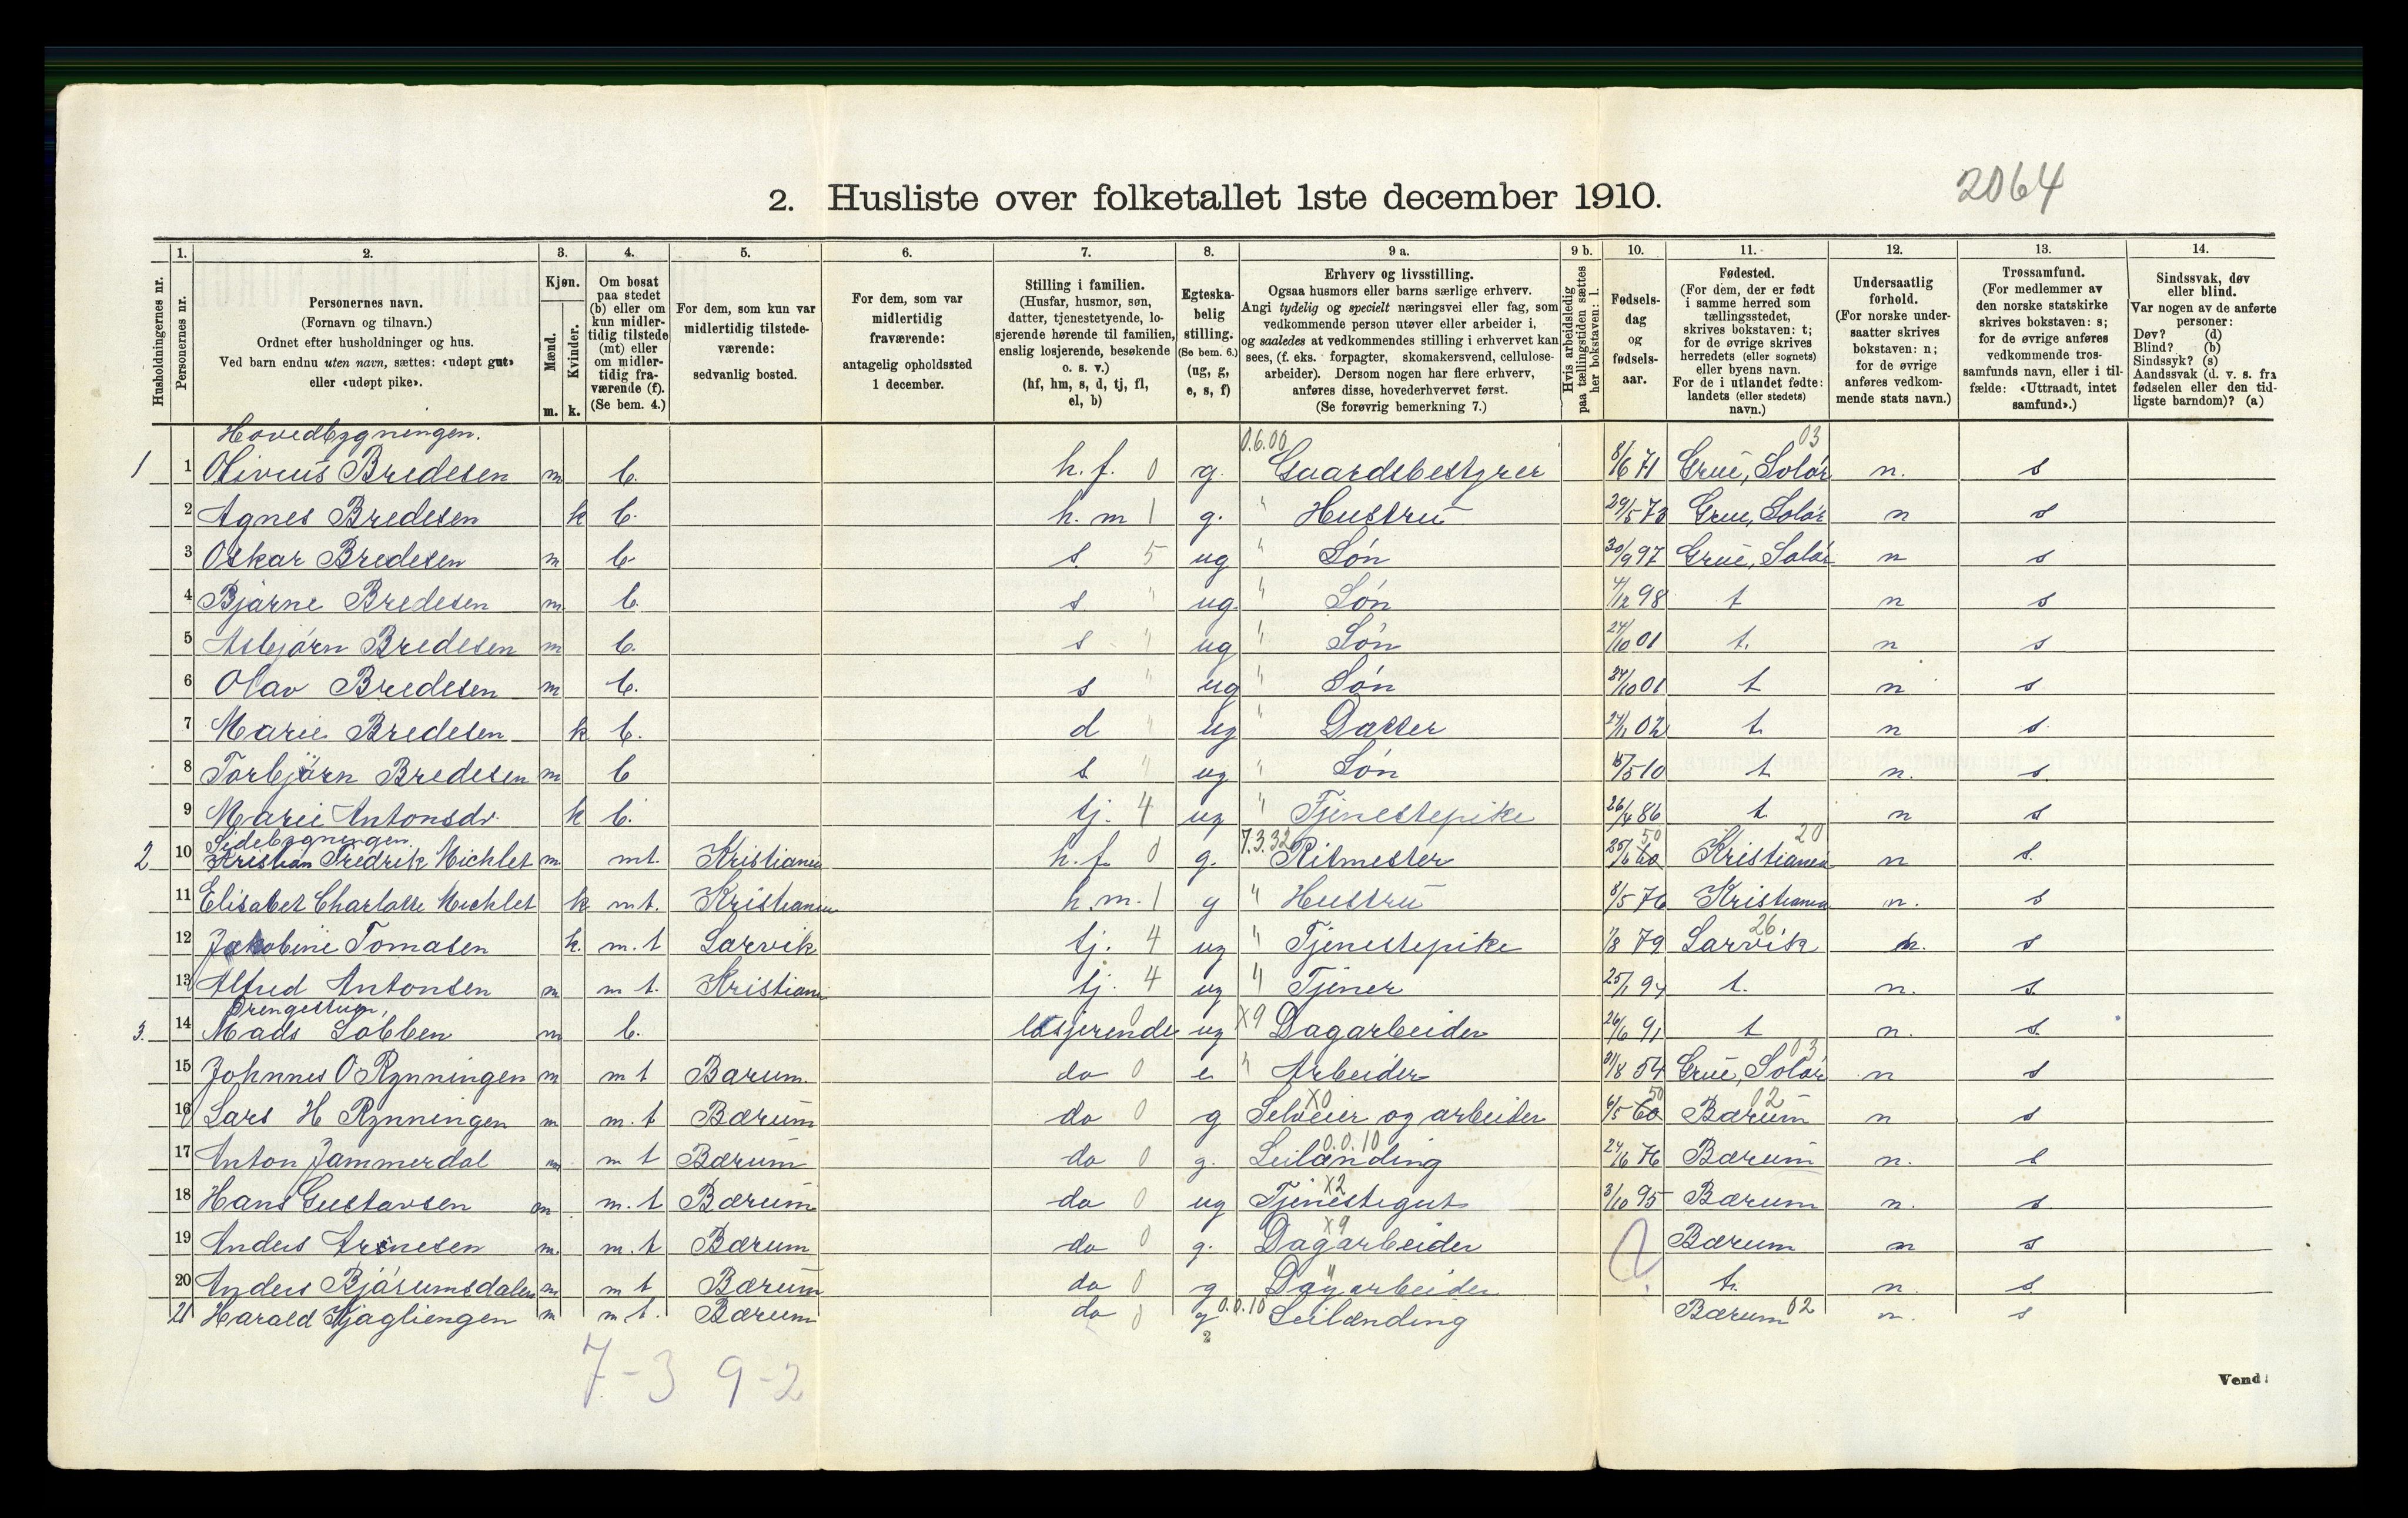 2. Husliste over folketallet 1ste december 1910.
2064
Husholdningernes nr.
1. Personernes nr.
2. Personernes navn.
(Fornavn og tilnavn.)
Ordnet efter husholdninger og hus.
Ved barn endnu uten navn, sættes: «udøpt gut»
eller «udøpt pike».
3. Kjøn.
Mænd. m.
Kvinder. k.
4. Om bosat
paa stedet
(b) eller om
kun midler-
tidig tilstede
(mt) eller
om midler-
tidig fra-
værende (f).
(Se bem. 4.)
5. For dem, som kun var
midlertidig tilstede-
værende:
sedvanlig bosted.
6. For dem, som var
midlertidig
fraværende:
antagelig opholdssted
1 december.
7. Stilling i familien.
(Husfar, husmor, søn,
datter, tjenestetyende, lo-
sjerende hørende til familien,
enslig losjerende, besøkende
o. s. v.)
(hf, hm, s, d, tj, fl,
el, b)
8. Egteska-
belig
stilling.
(Se bem. 6.)
(ug, g,
e, s, f)
9 a. Erhverv og livsstilling.
Ogsaa husmors eller barns særlige erhverv.
Angi tydelig og specielt næringsvei eller fag, som
vedkommende person utøver eller arbeider i,
og saaledes at vedkommendes stilling i erhvervet kan
sees, (f. eks. forpagter, skomakersvend, cellulose-
arbeider). Dersom nogen har flere erhverv,
anføres disse, hovederhvervet først.
(Se forøvrig bemerkning 7.)
9 b. Hvis arbeidsledig
paa tællingstiden sættes
her bokstaven: l.
10. Fødsels-
dag
og
fødsels-
aar.
11. Fødested.
(For dem, der er født
i samme herred som
tællingsstedet,
skrives bokstaven: t;
for de øvrige skrives
herredets (eller sognets)
eller byens navn.
For de i utlandet fødte:
landets (eller stedets)
navn.)
12. Undersaatlig
forhold.
(For norske under-
saatter skrives
bokstaven: n;
for de øvrige
anføres vedkom-
mende stats navn.)
13. Trossamfund.
(For medlemmer av
den norske statskirke
skrives bokstaven: s;
for de øvrige anføres
vedkommende tros-
samfunds navn, eller i til-
fælde: «Uttraadt, intet
samfund».)
14. Sindssvak, døv
eller blind.
Var nogen av de anførte
personer:
Døv? (d)
Blind? (b)
Sindssyk? (s)
Aandssvak (d. v. s. fra
fødselen eller den tid-
ligste barndom)? (a)
Hovedbygningen. 0.6.00 03
1 1 Olivius Bredesen m b. h. f. 0 g. Gaardsbestyrer 8/6 71 Grue, Solør n. s
2 Agnes Bredesen k b. h. m 1 g. " Hustru 29/5 73 Grue, Solør n s
3 Oskar Bredesen m b s. 5 ug " Søn 30/9 97 Grue, Solør n s
4 Bjarne Bredesen m. b. s " ug " Søn 4/12 98 t n s
5 Asbjørn Bredesen m b. s " ug " Søn 24/10 01 t. n s
6 Olav Bredesen m b. s " ug " Søn 24/10 01 t n s
7 Marie Bredesen k b. d " ug " Datter 24/11 02 t. n s.
8 Torbjørn Bredesen m b s " ug " Søn 15/5 10 t n. s.
9 Marie Antonsdr. k b. tj. 4 ug " Tjenestepike 26/4 86 t. n s
Sidebygningen. 7.3.32 50 20
2 10 Kristian Fredrik Michlet m. mt. Kristiania h. f. 0 g. Ritmester 25/6 60 Kristiania n s.
11 Elisabet Charlotte Michlet k. m.t. Kristiania h.m. 1 g " Hustru 8/5 76 Kristiania n. s
12 Jakobine Tomasen k. m.t Larvik tj. 4 ug " Tjenestepike 1/8 79 Larvik 26 n. s
13 Alfred Antonsen m m t. Kristiania tj. 4 ug " Tjener 25/1 94 t. n. s.
Drengestuen,
3. 14 Mads Løbben m b. losjerende 0 ug X9 Dagarbeider 26/6 91 t n. s.
15 Johnnes O Rynningen m m t Bærum. do 0 e " Arbeider 31/8 54 Grue, Solør 03 n s
16 Lars H Rynningen m m. t Bærum do 0 g Selveier og arbeider X0 6/5 60 50 Bærum 02 n s
17 Anton Jammerdal m m t Bærum do 0 g. Leilænding 0.0.10 24/6 76 Bærum n. s
18 Hans Gustavsen m m. t Bærum do 0 ug Tjenestegut X2 3/10 95 Bærum n. s.
19 Anders m. m. t Bærum do 0 g. Dagarbeider X9 ? Bærum n s
20 Anders Bjørumsdalen m m t Bærum do 0 g Dagarbeider " t. n. s
21 Harald Kjagliengen m m t. Bærum do 0 g 0.0.10 Leilænding Bærum 02 n. s
2
7-3 9-2
Vend!